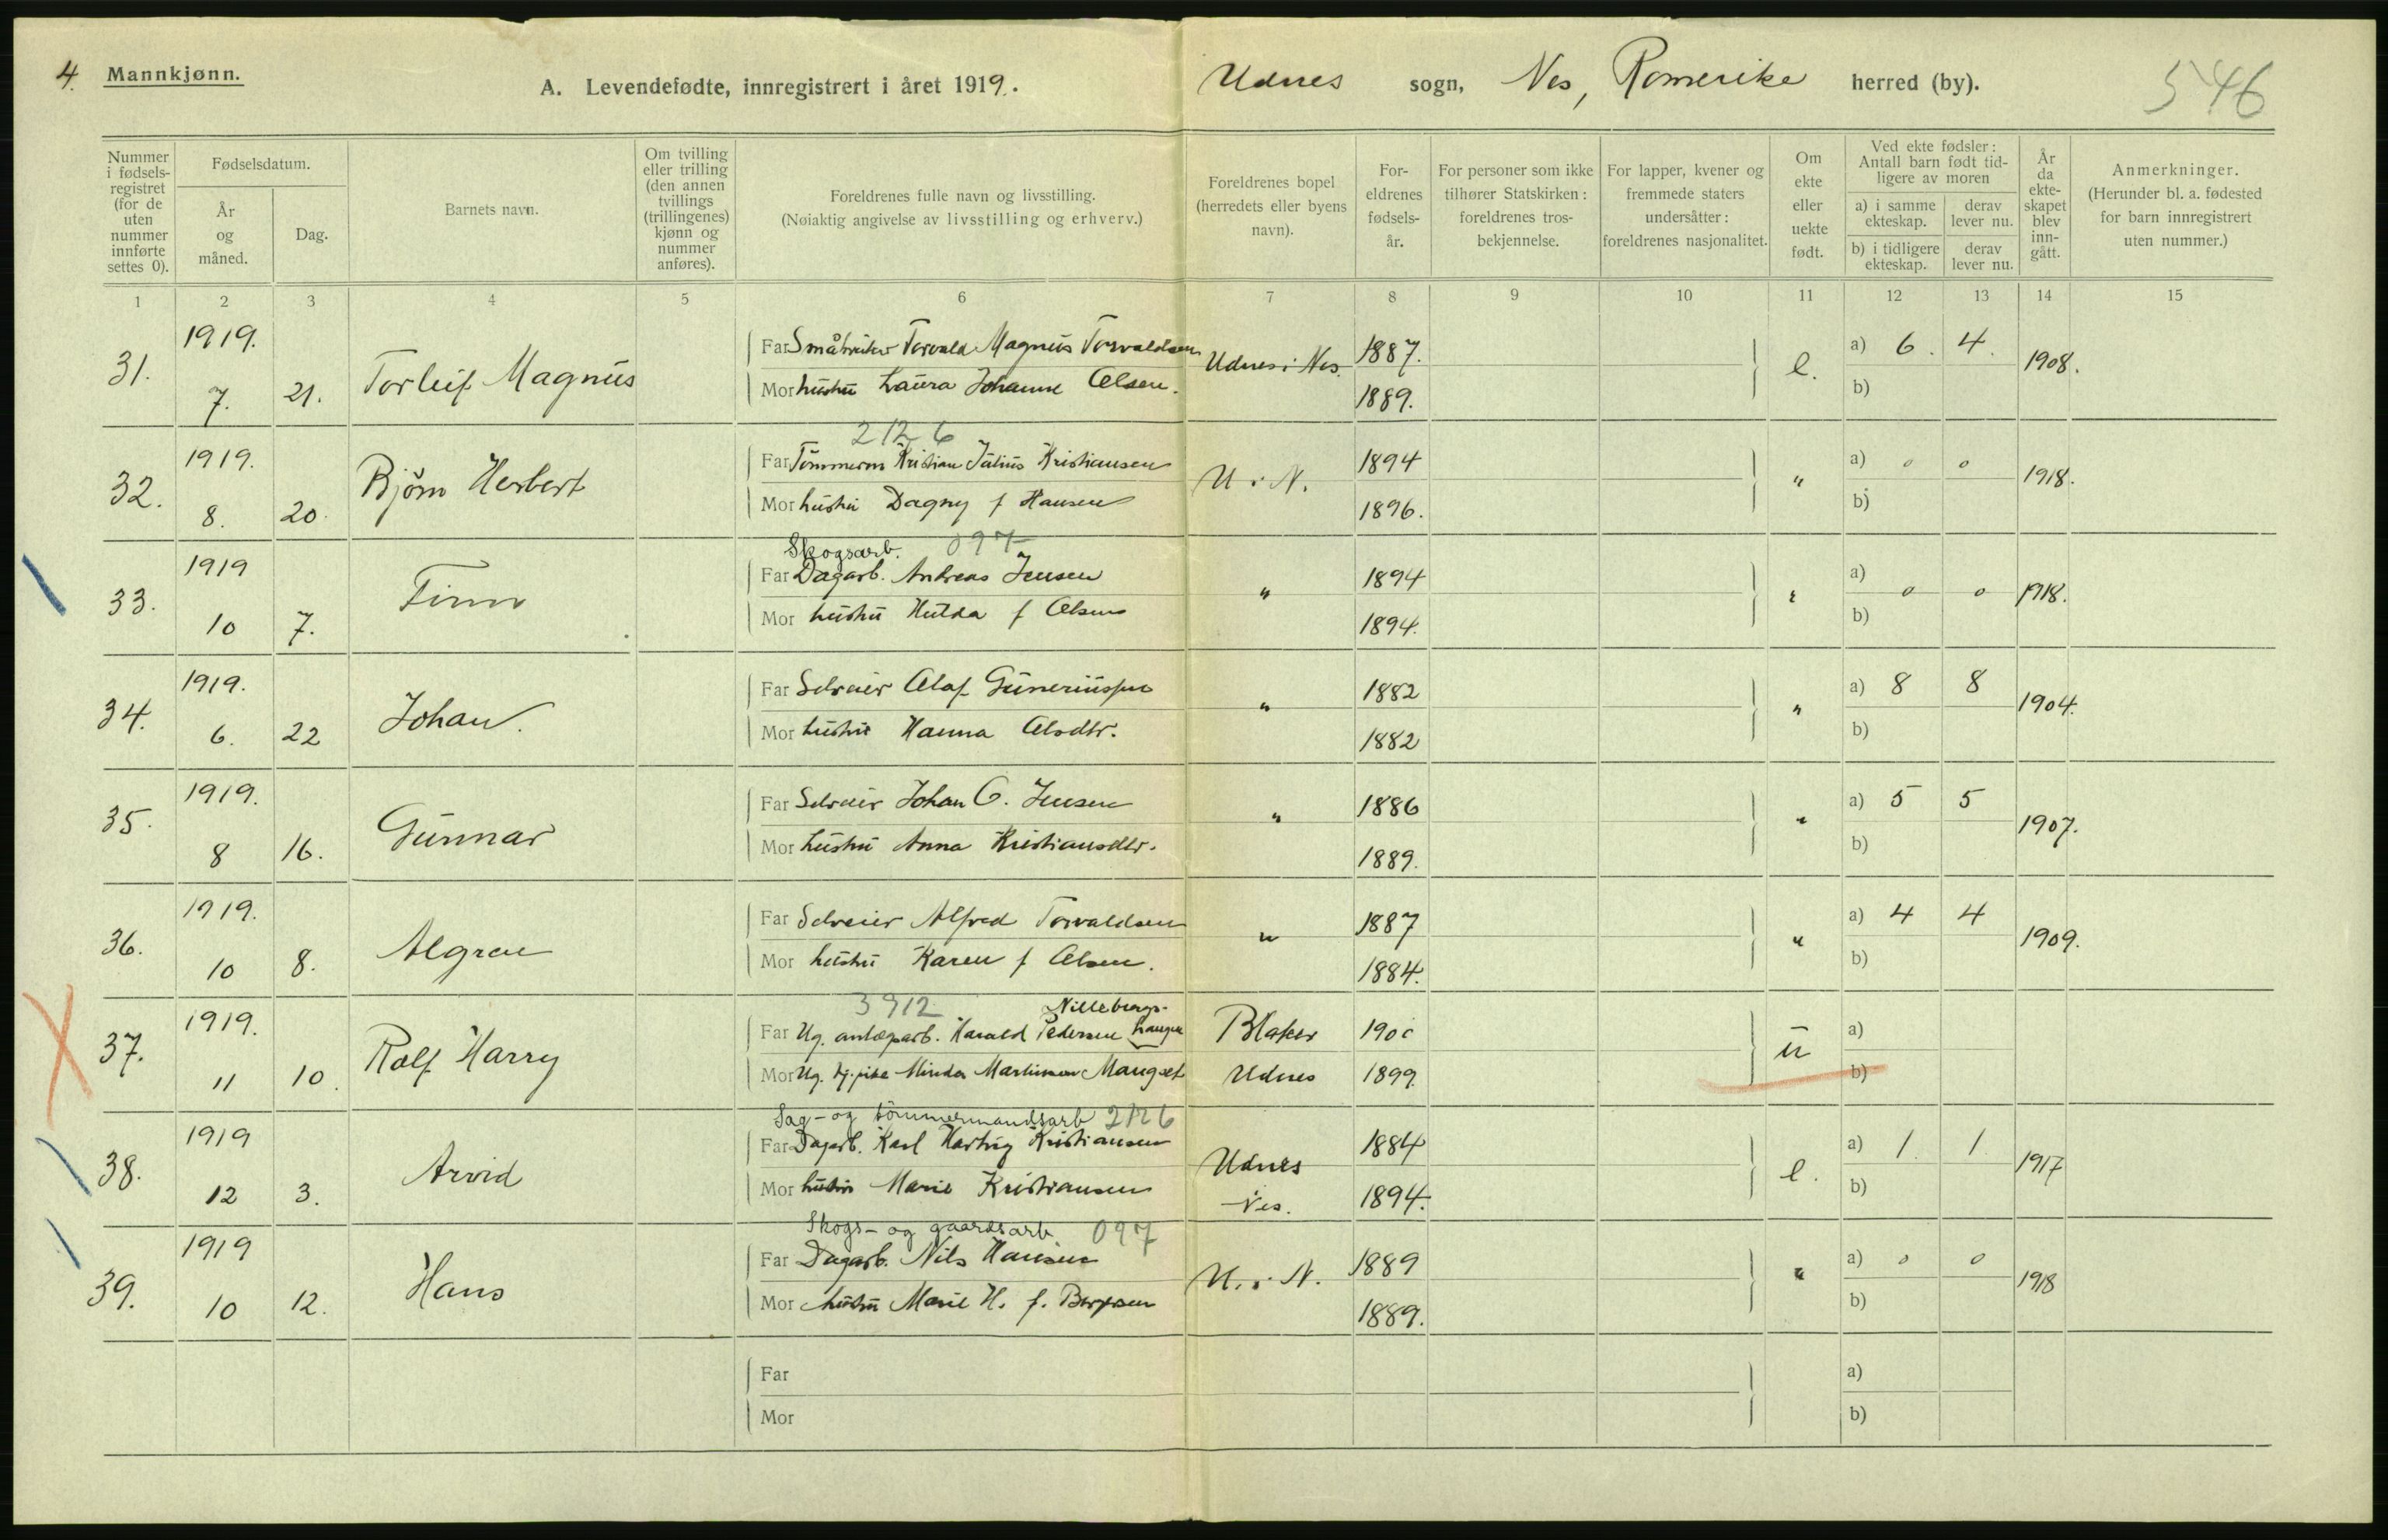 4. Mannkjønn.
A. Levendefødte, innregistrert i året 1919.
Udnes sogn, Nes, Romerike herred (by).
546
Nummer i fødsels-registret (for de uten nummer innførte settes 0).
Fødselsdatum.
År og måned.
Dag.
Barnets navn.
Om tvilling eller trilling (den annen tvillings (trillingenes) kjønn og nummer anføres).
Foreldrenes fulle navn og livsstilling.
(Nøiaktig angivelse av livsstilling og erhverv.)
Foreldrenes bopel (herredets eller byens navn).
For-eldrenes fødsels-år.
For personer som ikke tilhører Statskirken: foreldrenes tros-bekjennelse.
For lapper, kvener og fremmede staters undersåtter: foreldrenes nasjonalitet.
Om ekte eller uekte født.
Ved ekte fødsler: Antall barn født tid-ligere av moren
a) i samme ekteskap.
derav lever nu.
b) i tidligere ekteskap.
derav lever nu.
År da ekte-skapet blev inn-gått.
Anmerkninger.
(Herunder bl. a. fødested for barn innregistrert uten nummer.)
1 2 3 4 5 6 7 8 9 10 11 12 13 14 15
31. 1919. 7. 21. Torleif Magnus
Far Småbruker Torvald Magnus Torvaldsen Udnes i Nes. 1887. e. a) 6. 4. 1908.
Mor hustru Laura Johanne Olsen. 1889. b)
2126
32. 1919. 8. 20. Bjørn Herbert
Far Tømmerm Kristian Julius Kristiansen U. i N. 1894 " a) 0 0 1918.
Mor hustru Dagny f Hansen 1896. b)
Skogsarb. 097
33. 1919 10 7. Finn
Far Dagarb. Andreas Jensen " 1894 " a) 0 0 1918.
Mor hustru Hulda f Olsen 1894. b)
34. 1919. 6. 22 Johan.
Far Selveier Olaf Guneriussen " 1882 " a) 8 8 1904.
Mor hustru Hanna Olsdtr. 1882 b)
35. 1919. 8 16. Gunnar
Far Selveier Johan O. Jensen " 1886 " a) 5 5 1907.
Mor hustru Anna Kristiansdtr. 1889. b)
36. 1919. 10 8. Algren
Far Selveier Alfred Torvaldsen " 1887 " a) 4 4 1909.
Mor hustru Karen f Olsen. 1884. b)
3912 Nilleborgs-
37. 1919. 11 10. Rolf Harry
Far Ug. anlægsarb. Harald Pedersen haugen Blaker 1900 u a)
Mor Ug. tj.pike Minda Martinsen Maugset Udnes 1899. b)
Sag- og tömmermandsarb 2126
38. 1919 12 3. Arvid
Far Dagarb. Karl Hartvig Kristiansen Udnes 1884 e. a) 1. 1 1917
Mor hustru Marie Kristiansen Nes. 1894. b)
Skogs- og gaardsarb. 097
39. 1919 10 12. Hans
Far Dagarb. Nils Hansen U. i N. 1889 " a) 0 0 1918
Mor hustru Marie H. f. 1889. b)
Far a)
Mor b)